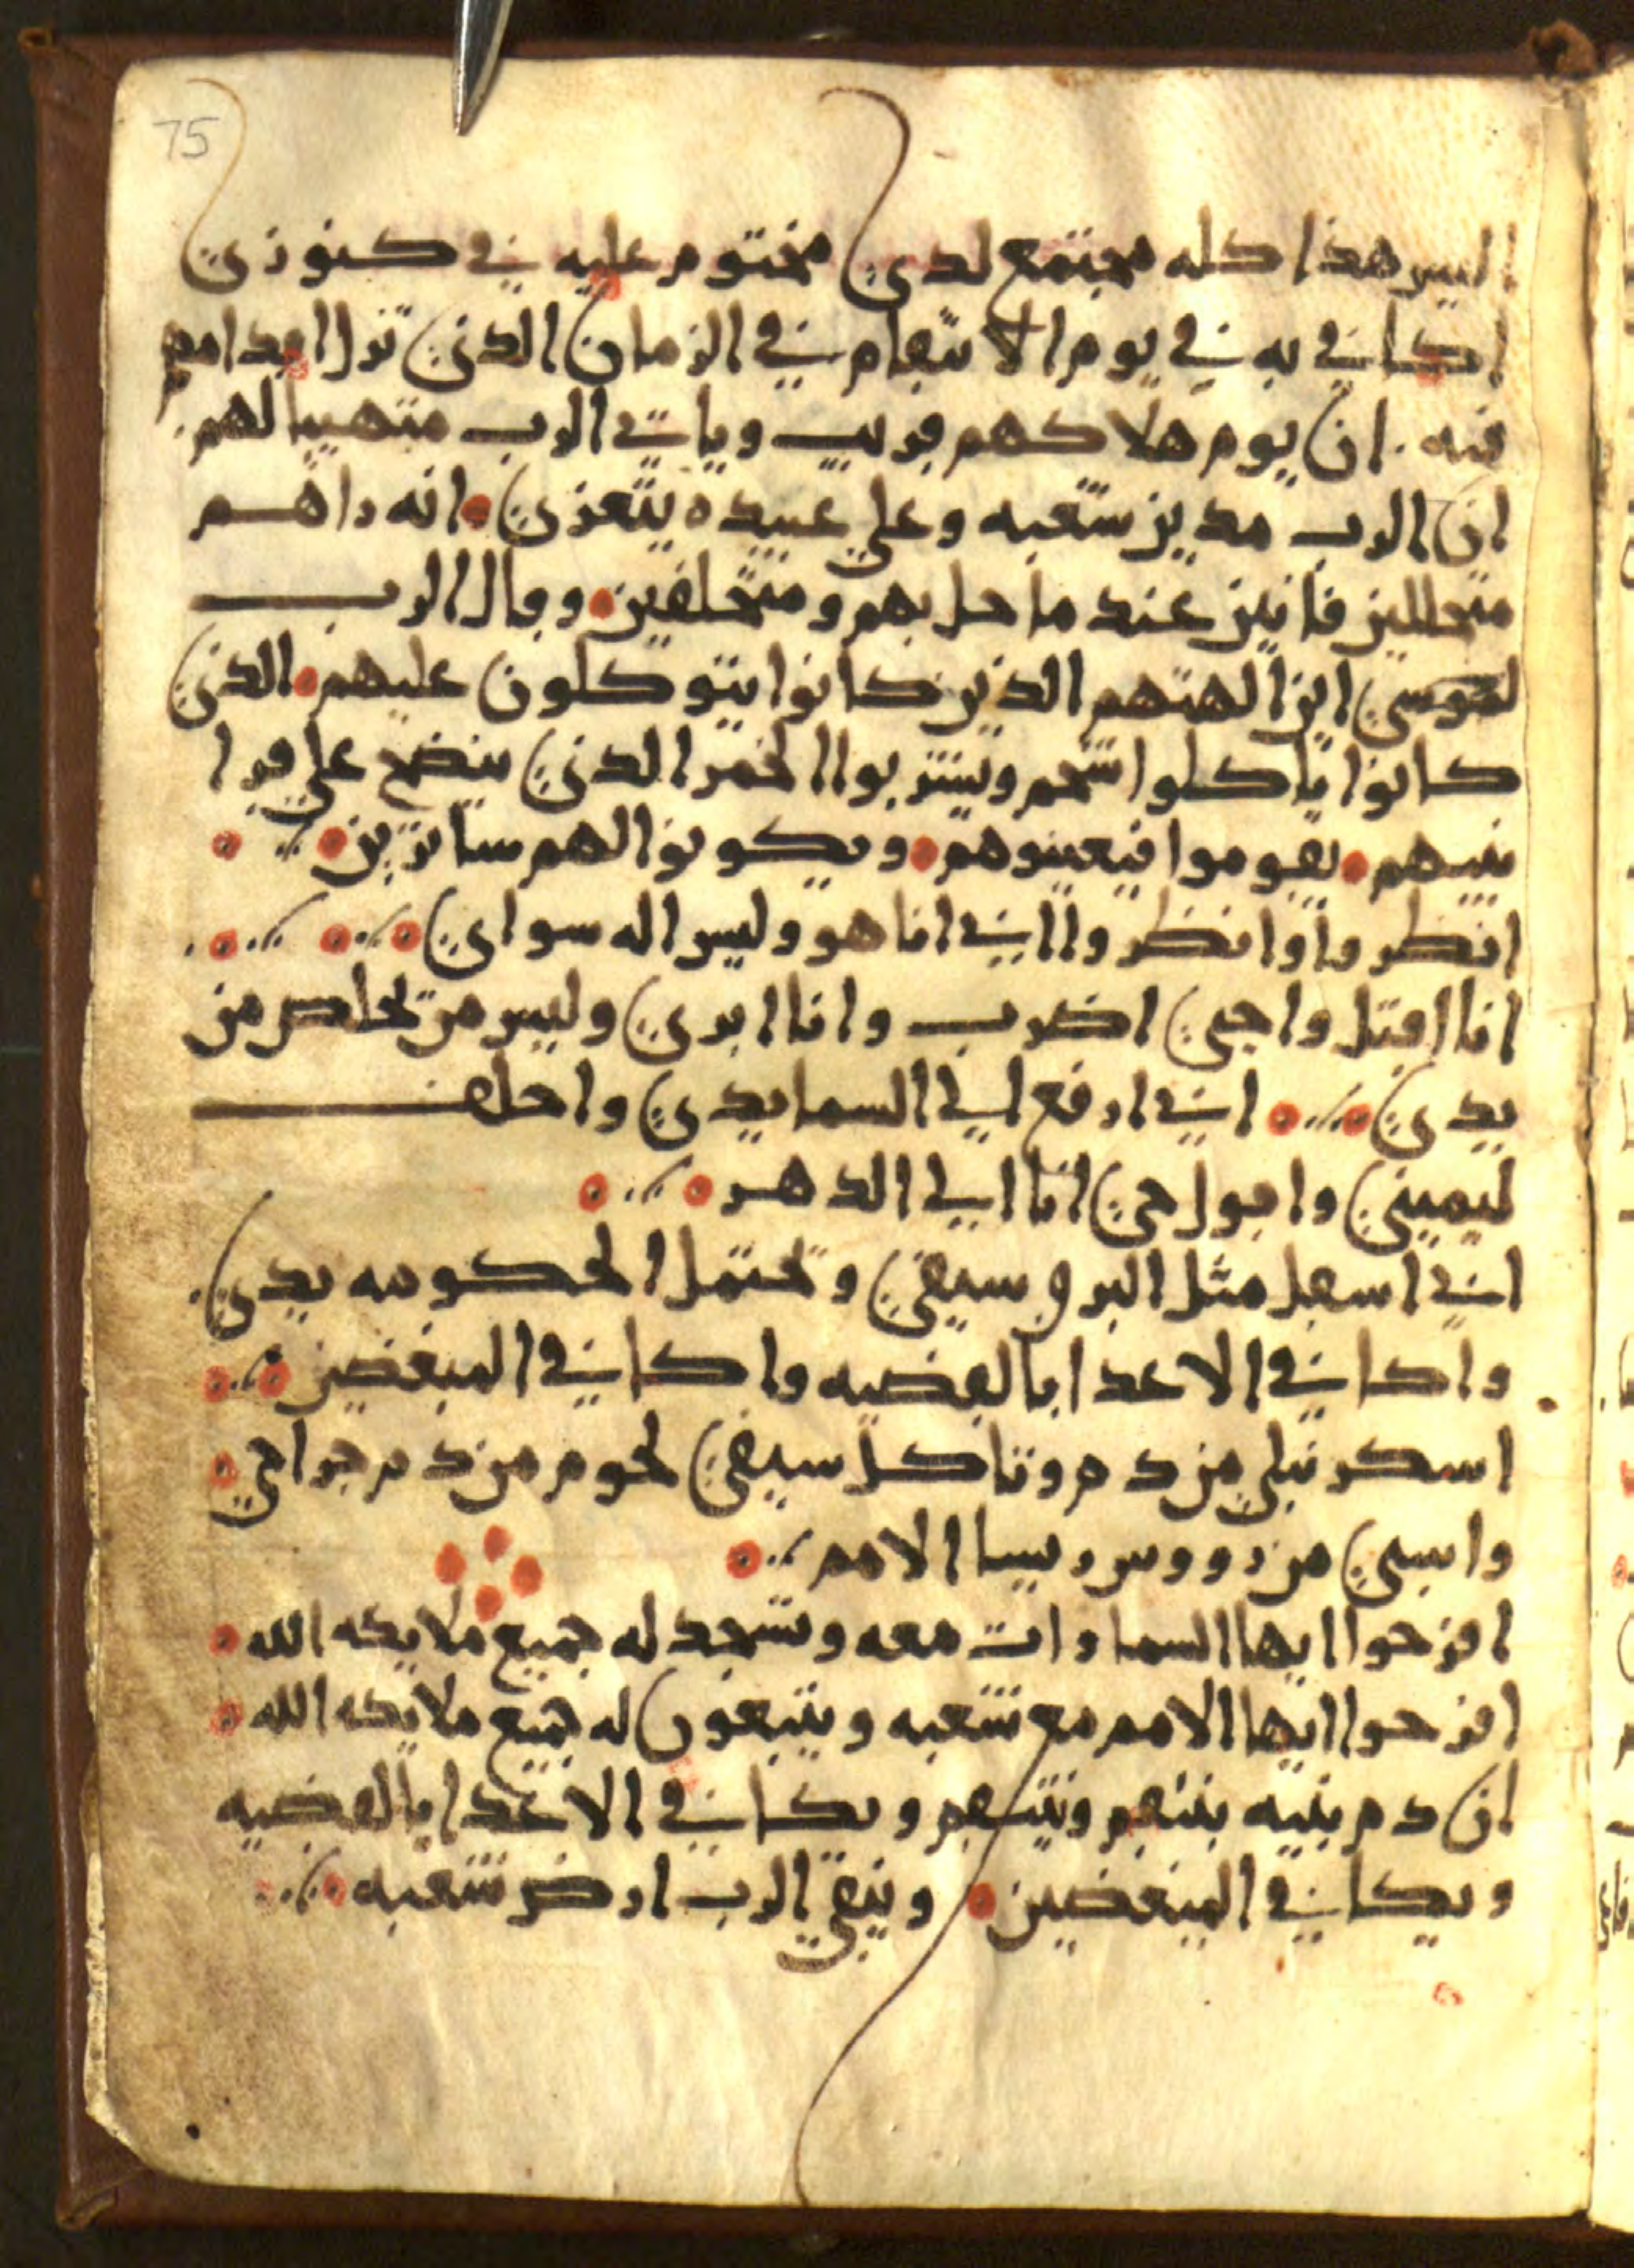 75
اليس هذا كله مجتمع لدي مختوم عليه في كنوزي
اكافي به في يوم الانتقام في الزمان الذي تزل اقدامهم
فيه . ان يوم هلاكهم قريب وياتي الرب متهييا لهم .
ان الرب مدين شعبه وعلي عبيده يتعزي انه راهم
متحللين فانين عند ما حل بهم ومتخلفين وقال الرب
لموسي اين الهتهم الذين كانوا يتوكلون عليهم الذي
كانوا ياكلوا شحم ويشربوا الخمر الذي ينضح علي قرا
بنيهم يقوموا فيعينوهم ويكونوا لهم ساترين
انظروا وانظروا اني انا هو وليس اله سواي
انا اقتل واحيي اضرب وانا ابري وليس من تخلص من
يدي اني ارفع الي السما يدي واحلف
ليميني واقول حي انا الي الدهر
اني اسقل مثل البرق سيفي وتحتمل الحكومه يدي .
واكافي الاعدا بالقضيه واكافي المبغضين
اسكر نبلي من دم وتاكل سيفي لحوم من دم جراحي
واسبي من رووس ريسا الامم
افرحوا ايها السماوات معه وتسجد له جميع ملايكه الله
افرحوا ايها الامم مع شعبه ويتبعون له جميع ملايكه الله
ان دم بنيه ينتقم وينتقم ويكافي الاعدا بالقضيه
ويكافي المبغضين وينقي الرب ارض شعبه